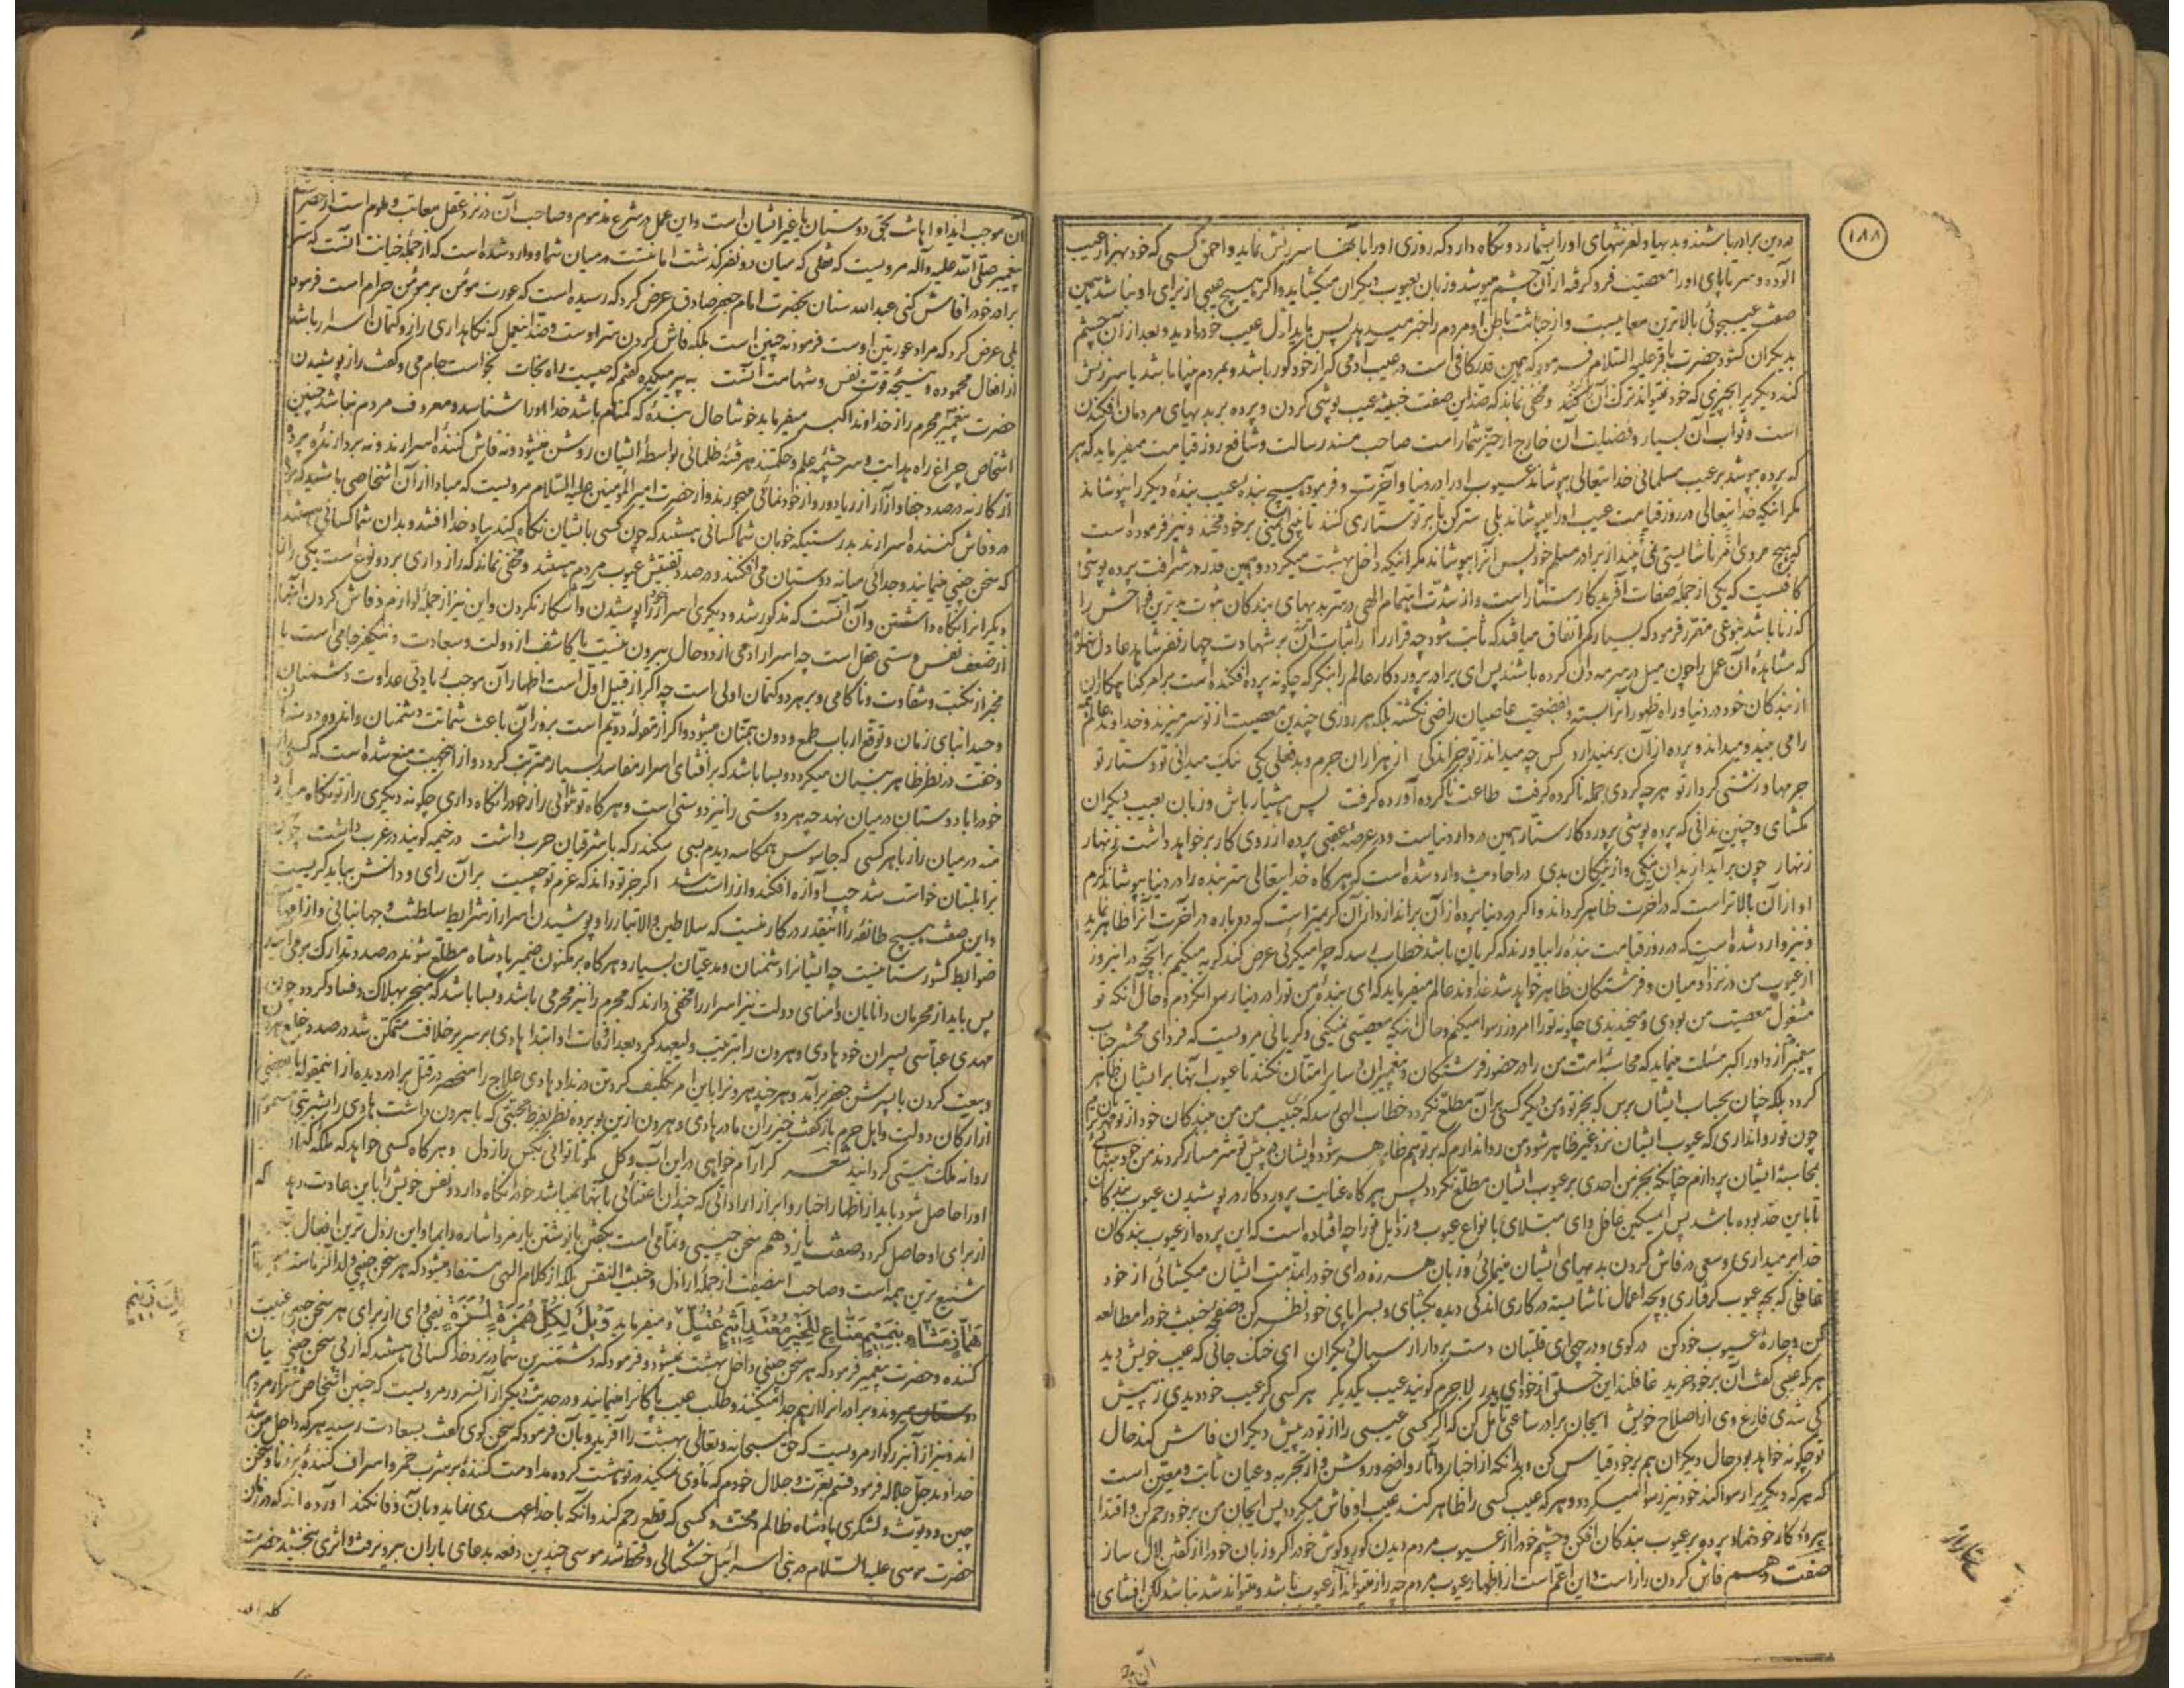 ۱۸۸
در دین برادر باشند و بدیها و لغزشهای او را بشمارد و نگاه دارد که روزی او را با آنها سرزنش نماید و احمق کسی که خود بهزار عیب
آلوده و سر تا پای او را معصیت فرو گرفته از آن چشم میپوشد و زبان بعیوب دیگران میگشاید و اگر هیچ عیبی از برای او نباشد همین
صفت عیبجوئی بالاترین معایبست و از خباثت باطن او مردم را خبر میدهد پس باید اول عیب خود را دید و بعد از آن چشم
بدیگران گشود حضرت باقر علیه السلام فرمود که همین قدر کافی است در عیب آدمی که از خود کور باشد و بمردم بینا باشد یا سرزنش
کند دیگری را بچیزی که خود نتواند ترک آن کند و مخفی نماند که ضد این صفت خبیثه عیب پوشی کردن و پرده بر بدیهای مردمان افکندن
است و ثواب آن بسیار و فضیلت آن خارج از حیّز شمار است صاحب مسند رسالت و شافع روز قیامت میفرماید که هر
که پرده بپوشد بر عیب مسلمانی خدایتعالی بپوشاند عیوب او را در دنیا و آخرت و فرموده هیچ بنده عیب بنده دیگر را نپوشاند
مگر اینکه خدایتعالی در روز قیامت عیب او را بپوشاند بلی ستر کن تا بر تو ستاری کنند تا نبینی بر خود نخند و نیز فرموده است
که هیچ مردی امر ناشایستی نمی بیند از برادر مسلم خود پس آنرا بپوشاند مگر اینکه داخل بهشت میگردد و همین قدر در شرافت پرده پوشی
کافیست که یکی از جمله صفات آفریدگار ستار است و از شدت اهتمام الهی در ستر بدیهای بندگان ثبوت بدترین فواحش را
که زنا باشد بنوعی مقرر فرمود که بسیار کم اتفاق میافتد که ثابت شود چه قرارداد اثبات آن بر شهادت چهار نفر شاهد عادل
که مشاهده آن عمل را چون میل در سرمه دان کرده باشند پس ای برادر پروردگار عالم را بنگر که چگونه پرده افکنده است بر امر گناهکاران
از بندگان خود در دنیا و راه ظهور آنرا بسته و بفضیحت عاصیان راضی نگشته بلکه هر روزی چندین معصیت از تو سر میزند و خداوند عالم همه
را می بیند و میداند و پرده از آن بر نمیدارد کس چه میداند ز تو جز اندکی از هزاران جرم و بد فعلی یکی نیک میدانی تو و ستار تو
جرمها و زشتی کردار تو هر چه کردی جمله ناکرده گرفت طاعت ناکرده آورده گرفت پس هشیار باش و زبان بعیب دیگران
مگشای و چنین ندانی که پرده پوشی پروردگار ستار همین در دار دنیاست و در عرصه عقبی پرده از روی کار بر خواهد داشت زنهار
زنهار چون بر آید از بدان نیکی و از نیکان بدی در احادیث وارد شده است که هر گاه خدایتعالی ستر بنده را در دنیا بپوشاند کرم
او از آن بالاتر است که در آخرت ظاهر گرداند و اگر در دنیا پرده از آن براندازد از آن کریمتر است که دوباره در آخرت آنرا ظاهر نماید
و نیز وارد شده است که در روز قیامت بنده را بیاورند که گریان باشد خطاب رسد که چرا میگریی عرض کند گریه میکنم بر آنچه در این روز
از عیوب من در نزد آدمیان و فرشتگان ظاهر خواهد شد خداوند عالم میفرماید که ای بنده من تو را در دنیا رسوا نکردم و حال آنکه تو
مشغول معصیت من بودی و میخندیدی چگونه تو را امروز رسوا میکنم و حال آنکه معصیتی نمیکنی و گریانی مرویست که فردای محشر جناب
پیغمبر از داور اکبر مسئلت مینماید که محاسبه امت من را در حضور فرشتگان و پیغمبران و سایر امتان نکند تا عیوب آنها بر ایشان ظاهر
گردد بلکه چنان بحساب ایشان برس که بجز تو و من دیگر کسی بر آن مطلع نگردد خطاب الهی رسد که حبیب من من ببندگان خود از تو مهربانترم
چون تو روا نداری که عیوب ایشان نزد غیر ظاهر شود من روا ندارم که بر تو هم ظاهر شود و ایشان پیش تو شرمسار گردند من خود بتنهائی
بحاسبه ایشان پردازم چنانکه بجز من احدی بر عیوب ایشان مطلع نگردد پس هر گاه عنایت پروردگار در پوشیدن عیوب بندگان
تا باین حد بوده باشد پس ای مسکین غافل و ای مبتلای بانواع عیوب و رذایل تو را چه افتاده است که این پرده از عیوب بندگان
خدا بر میداری و سعی در فاش کردن بدیهای ایشان مینمائی و زبان هرزه درای خود را بمذمت ایشان میگشائی از خود
غافلی که بچه عیوب گرفتاری و بچه اعمال ناشایسته در کاری اندکی دیده بگشای و بسراپای خود نظر کن و صفحه خبیث خود را مطالعه
کن و چاره عیوب خود کن در کوی و در چی ای قلتبان دست بردار از سبال دیگران ای خنک جانی که عیب خویش دید
هر که عیبی گفت آن بر خود خرید غافلند این خلق از خود ای پدر لاجرم گویند عیب یکدیگر هر کسی گر عیب خود دیدی ز پیش
کی شدی فارغ وی از اصلاح خویش ایجان برادر ساعتی تامل کن که اگر کسی عیبی را از تو در پیش دیگران فاش کند حال
تو چگونه خواهد بود حال دیگران هم بر خود قیاس کن و بدانکه از اخبار و آثار واضح و روشن و از تجربه و عیان ثابت و معین است
که هر که دیگری را رسوا کند خود نیز رسوا میگردد و هر که عیب کسی را ظاهر کند عیب او فاش میگردد پس ایجان من بر خود رحم کن و اقتدا
بپروردگار خود نما و پرده بر عیوب بندگان افکن و چشم خود را از عیوب مردم دیدن کور و گوش خود را کر و زبان خود را از گفتن لال ساز
صفت دهم فاش کردن راز است و این اعم است از اظهار عیوب مردم چه راز میتواند از عیوب باشد و میتواند شد نباشد لکن افشای
آن
آن موجب ایذا و اهانت بحق دوستان یا غیر ایشان است و این عمل در شرع مذموم و صاحب آن در نزد عقل معاتب و ملوم است از حضرت
پیغمبر صلی الله علیه و آله مرویست که نقلی که میان دو نفر گذشت امانتست در میان شما و وارد شده است که از جمله خیانت آنست که سر
برادر خود را فاش کنی عبدالله سنان بحضرت امام جعفر صادق عرض کرد که رسیده است که عورت مؤمن بر مؤمن حرام است فرمود
بلی عرض کرد که مراد عورتین اوست فرمود نه چنین است بلکه فاش کردن سر اوست و ضد اینعمل که نگاهداری راز و کتمان اسرار باشد
از افعال محموده و نتیجه قوت نفس و شهامت آنست به پیر میکده گفتم که چیست راه نجات بخواست جام می و گفت راز پوشیدن
حضرت پیغمبر محرم راز خداوند اکبر میفرماید خوشا حال بنده که گمنام باشد خدا او را شناسد و معروف مردم نباشد چنین
اشخاص چراغ راه هدایت و سر چشمه علم و حکمتند هر فتنه ظلمانی بواسطه ایشان روشن میشود و نه فاش کننده اسرارند و نه بردارنده پرده
از کار نه در صدد جفا و آزار از ریا دور و از خودنمائی مهجورند و از حضرت امیرالمومنین علیه السلام مرویست که مبادا از آن اشخاصی باشید که پرده
در و فاش کننده اسرارند بدرستیکه خوبان شما کسانی هستند که چون کسی بایشان نگاه کند بیاد خدا افتد و بدان شما کسانی هستند
که سخن چینی مینمایند و جدائی میانه دوستان می افکنند و در صدد تفتیش عیوب مردم هستند و مخفی نماند که رازداری بر دو نوع است یکی راز
دیگرانرا نگاه داشتن و آن آنست که مذکور شد و دیگری اسرار خود را پوشیدن و آشکار نکردن و این نیز از جمله لوازم و فاش کردن آنها
از ضعف نفس و سستی عقل است چه اسرار آدمی از دو حال بیرون نیست یا کاشف از دولت و سعادت و نیکفرجامی است یا
مخبر از نکبت و شقاوت و ناکامی و بر هر دو کتمان اولی است چه اگر از قبیل اول است اظهار آن موجب زیادتی عداوت دشمنان
و حسد ابنای زمان و توقع ارباب طمع و دون همتان میشود و اگر از مقوله دویم است بروز آن باعث شماتت دشمنان و اندوه دوستان
و خفت در نظر ظاهر بینان میگردد و بسا باشد که بر افشای اسرار مفاسد بسیار مترتب گردد و از اینجهت منع شده است که کسی راز
خود را با دوستان در میان نهد چه هر دوستی را نیز دوستی است و هر گاه تو نتوانی راز خود را نگاه داری چگونه دیگری راز تو نگاه میدارد
منه در میان راز با هر کسی که جاسوس همکاسه دیدم بسی سکندر که با شرقیان حرب داشت در خیمه گویند در غرب داشت چو بهمن
بزابلستان خواست شد چپ آوازه افکند و از راست شد اگر جز تو داند که عزم تو چیست بر آن رای و دانش بباید گریست
و این صفت هیچ طائفه را اینقدر در کار نیست که سلاطین والاتبار را و پوشیدن اسرار از شرایط سلطنت و جهانبانی و از امهات
ضوابط کشورستانیست چه ایشانرا دشمنان و مدعیان بسیار و هر گاه بر مکنون ضمیر پادشاه مطلع شوند در صدد تدارک بر می آیند
پس باید از محرمان و دانایان و امنای دولت نیز اسرار را مخفی دارند که محرم را نیز محرمی باشد و بسا باشد که منجر بهلاک و فساد گردد چون
مهدی عباسی پسران خود هادی و هرون را بترتیب ولیعهد کرد بعد از وفات او ابتدا هادی بر سریر خلافت متمکن شد در صدد خلع هرون
و بیعت کردن با پسرش جعفر بر آمد و هر چند هرونرا باین امر تکلیف کرد تن در نداد هادی علاج را منحصر در قتل برادر دیده از اینمقوله با بعضی
از ارکان دولت و اهل حرم باز گفت خیزران مادر هادی و هرون ازین بو برده نظر بفرط محبتی که با هرون داشت هادی را بشربتی مسموم
روانه ملک نیستی گردانید شعر گر آرام خواهی در این آب و گل مگو تا توانی بکس راز دل و هر گاه کسی خواهد که ملکه کتمان
او را حاصل شود باید از اظهار اخبار و ابراز اراداتی که چندان اعتنائی بآنها نباشد خود را نگاه دارد و نفس خویش را باین عادت دهد که
از برای او حاصل گردد صفت یازدهم سخن چینی و نمامی است بگفتن یا نوشتن یا برمز و اشاره و ایما و این رذل ترین افعال
شنیع ترین همه است و صاحب اینصفت از جمله اراذل و خبیث النفس بلکه از کلام الهی مستفاد میشود که هر سخن چینی ولد الزناست
هَمَّازٍ مَشَّاءٍ بِنَمِيمٍ مَنَّاعٍ لِلْخَيْرِ مُعْتَدٍ اَثِيمٍ عُتُلٍّ و میفرماید وَيْلٌ لِكُلِّ هُمَزَةٍ لُمَزَةٍ یعنی وای از برای هر سخن چین غیبت
کننده و حضرت پیغمبر فرمود که هر سخن چینی داخل بهشت نمیشود و فرمود که دشمنترین شما در نزد خدا کسانی هستند که از پی سخن چینی میان
دوستان میروند و برادرانرا از هم جدا میکنند و طلب عیب پاکانرا مینمایند و در حدیث دیگر از آنسرور مرویست که چنین اشخاص شرار مردم
اند و نیز از آن بزرگوار مرویست که حق سبحانه و تعالی بهشت را آفرید و بآن فرمود که سخن گوی گفت بسعادت رسید هر که داخل من شد
خداوند جل جلاله فرمود قسم بعزت و جلال خودم که ماوی نمیکند در تو هشت کرده مداومت کننده بر شرب خمر و اصراف کننده بر زنا و سخن
چین و دیوث و لشکری پادشاه ظالم و مخنث و کسی که قطع رحم کند و آنکه با خدا عهدی نماید و بآن وفا نکند آورده اند که در زمان
حضرت موسی علیه السلام در بنی اسرائیل خشکسالی و قحط شد موسی چندین دفعه بدعای باران بیرون رفت و اثری نبخشید حضرت